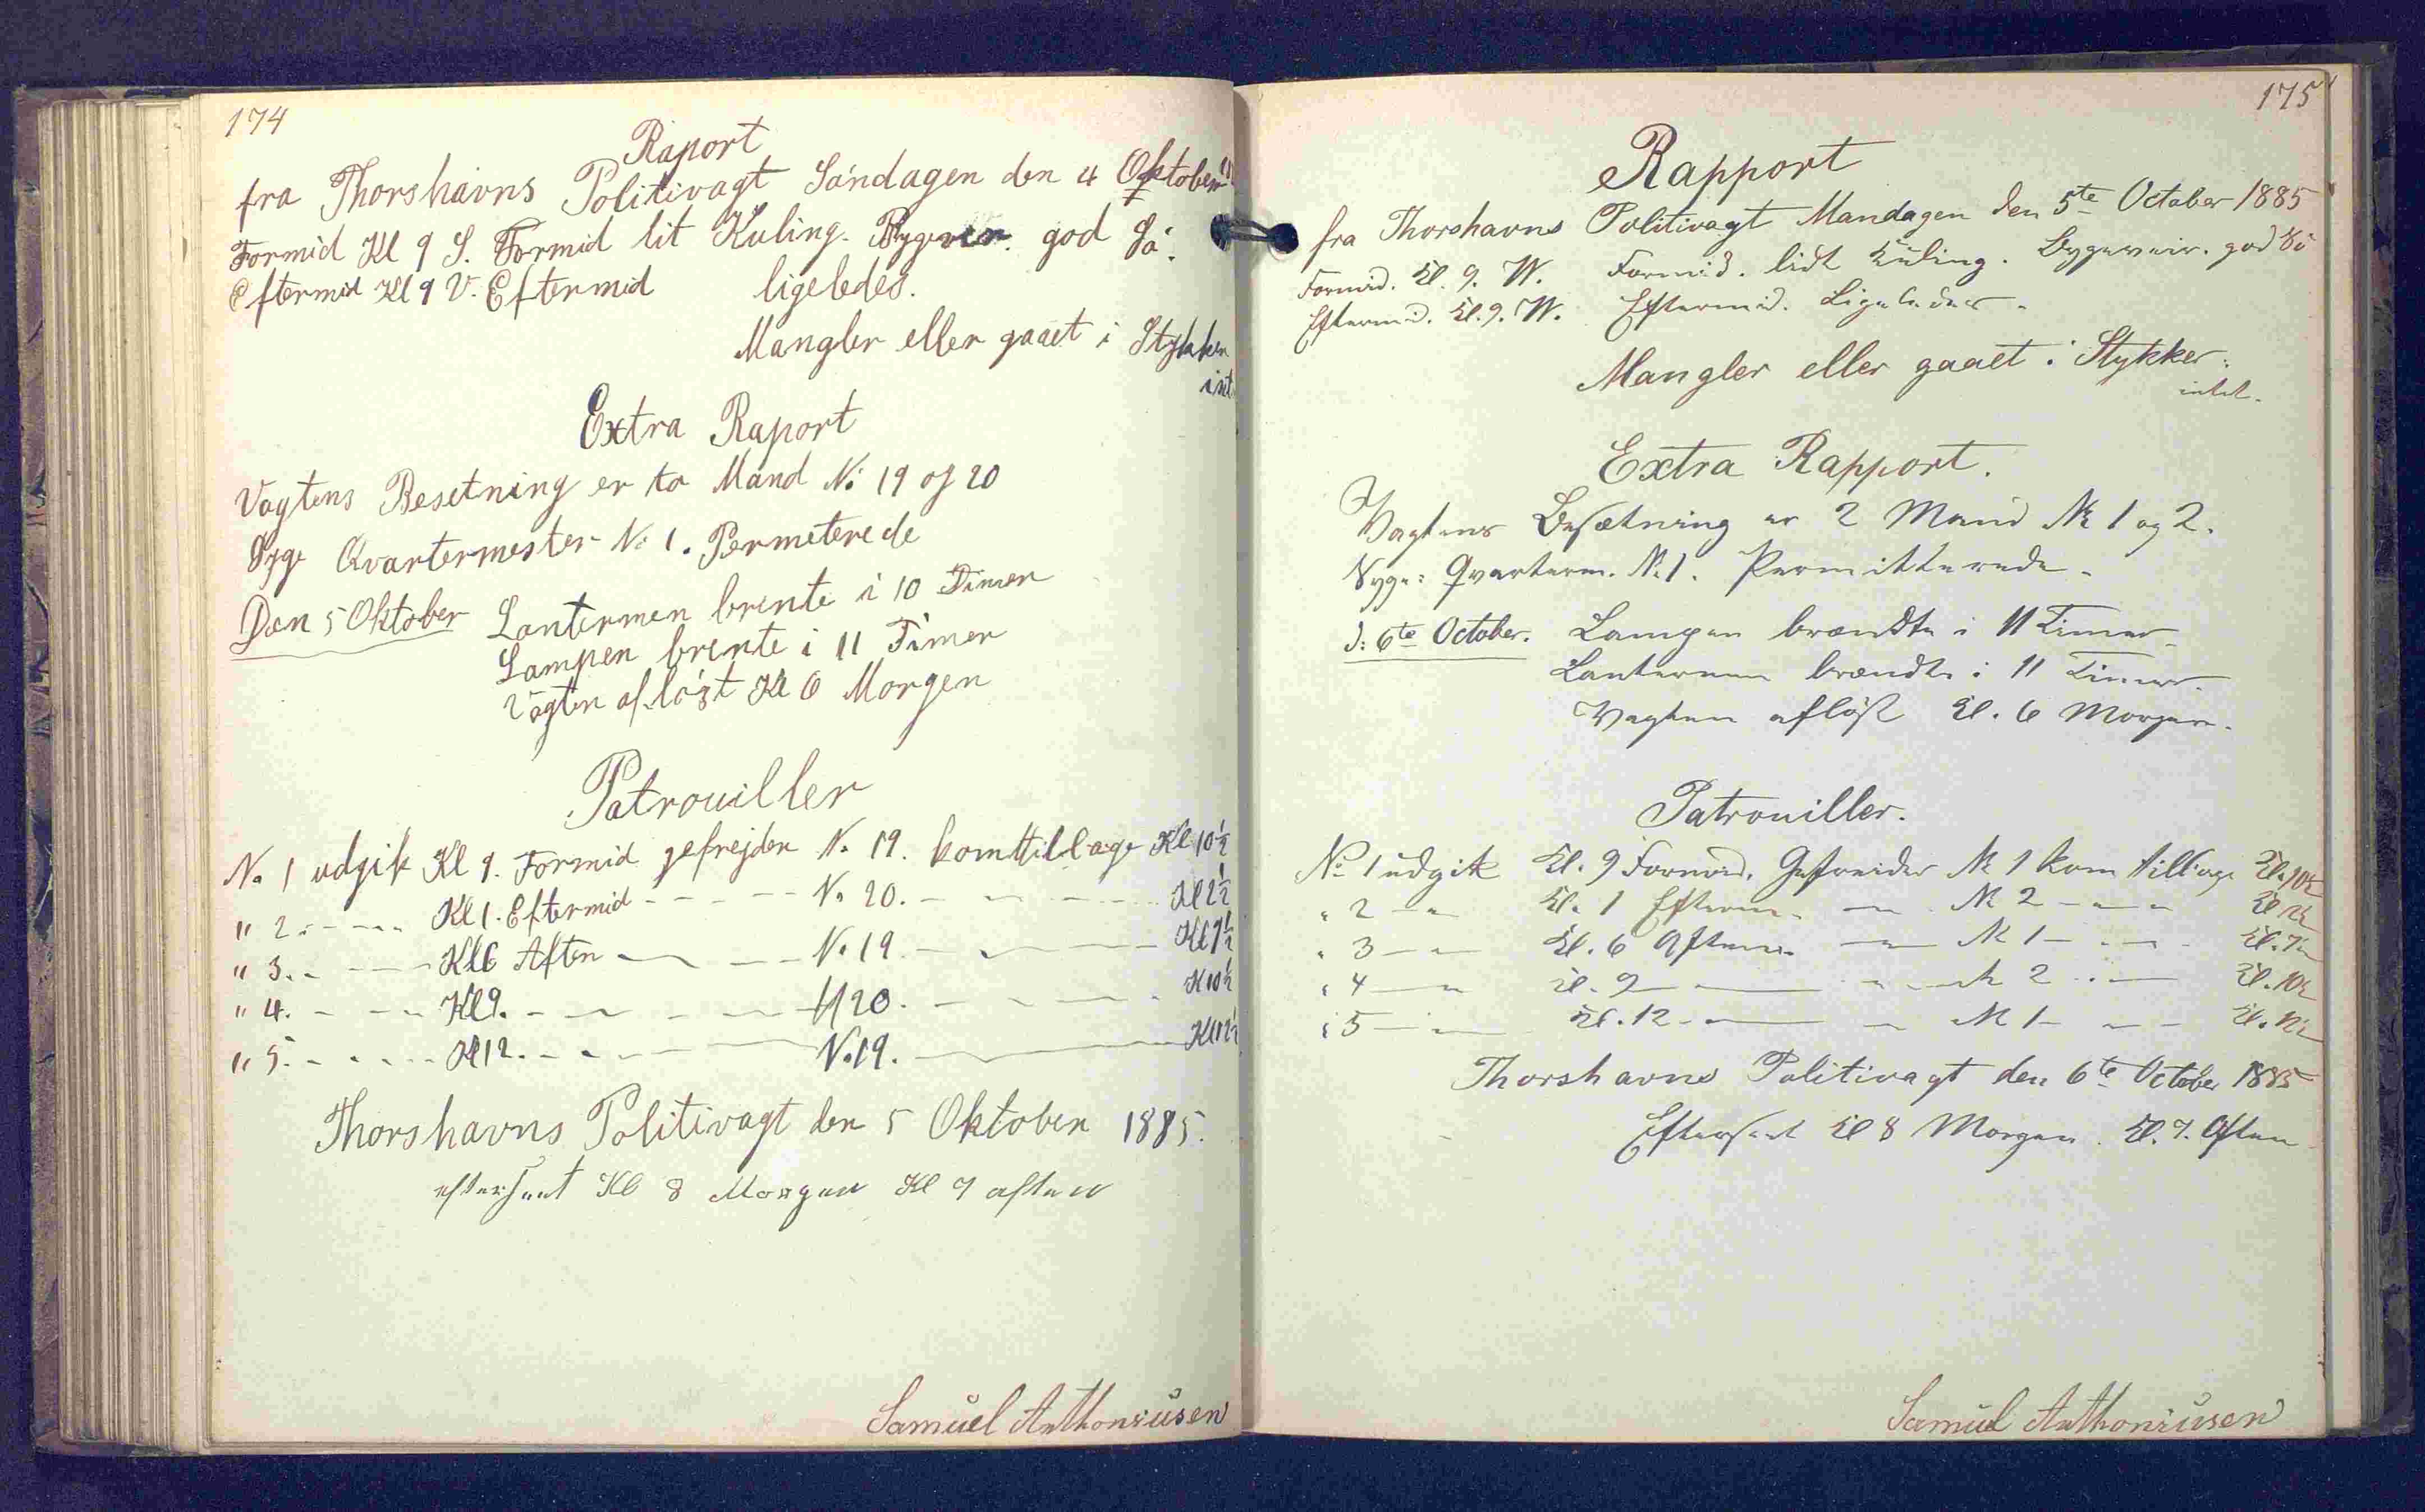 174
Raport
fra Thorshavns Politivagt Søndagen den 4 Oktober
Formid Kl 9 S. Formid lit Kuling. Bygever. god Sø.
Eftermid Kl 9 V. Eftermid ligeledes.
Mangler eller gaaet i Stykker
int
Extra Raport
Vagtens Besetning er to Mand No 19 og 20
Syge Kvartermester No 1. Permeterede
Den 5 Oktober Lanternen brente i 10 Timer
Lampen brente i 11 Timer
Vagten afløst Kl 6 Morgen
Patrouiller
No 1 udgik Kl 9. Formid gefrejder No 19. kom tilbage Kl 10½
" 2. - - - Kl 1. Eftermid - - - No 20. - - - Kl 2½
" 3. - - - Kl 6 Aften - - - No 19 - - - Kl 7½
" 4. - - - Kl 9. - - - N 20. - - - Kl 10½
" 5. - - - Kl 12. - - - No 19. - - - Kl 12½
Thorshavns Politivagt den 5 Oktober 1885.
efterseet Kl 8 Morgen Kl 7 aften
Samuel Anthoniusen
175
Rapport
fra Thorshavns Politivagt Mandagen den 5te October 1885
Formid. Kl. 9. W. Formid. lidt Kuling. Bygeveir. god Sö
Eftermid. Kl. 9. W. Eftermid. Ligeledes.
Mangler eller gaaet i Stykker:
intet.
Extra Rapport.
Vagtens Besætning er 2 Mand No 1 og 2.
Syge: Qvarterm. No 1. Permitterede -
d: 6te October. Lampen brændte i 11 Timer
Lanternen brændte i 11 Timer.
Vagten afløst Kl. 6 Morgen.
Patrouiller.
No 1 udgik Kl. 9 Formid. Gefreider No 1 kom tilbage Kl. 10½
" 2 - - Kl. 1 Efterm. - No 2 - - - Kl 2½
" 3 - - Kl. 6 Aften - No 1 - - - Kl. 7½
" 4 - - Kl. 9 - - - No 2 - - Kl. 10½
" 5 - - Kl. 12 - - - No 1 - - - Kl. 12½
Thorshavns Politivagt den 6te October 1885
Efterseet Kl 8 Morgen. Kl. 7. Aften
Samuel Anthoniusen